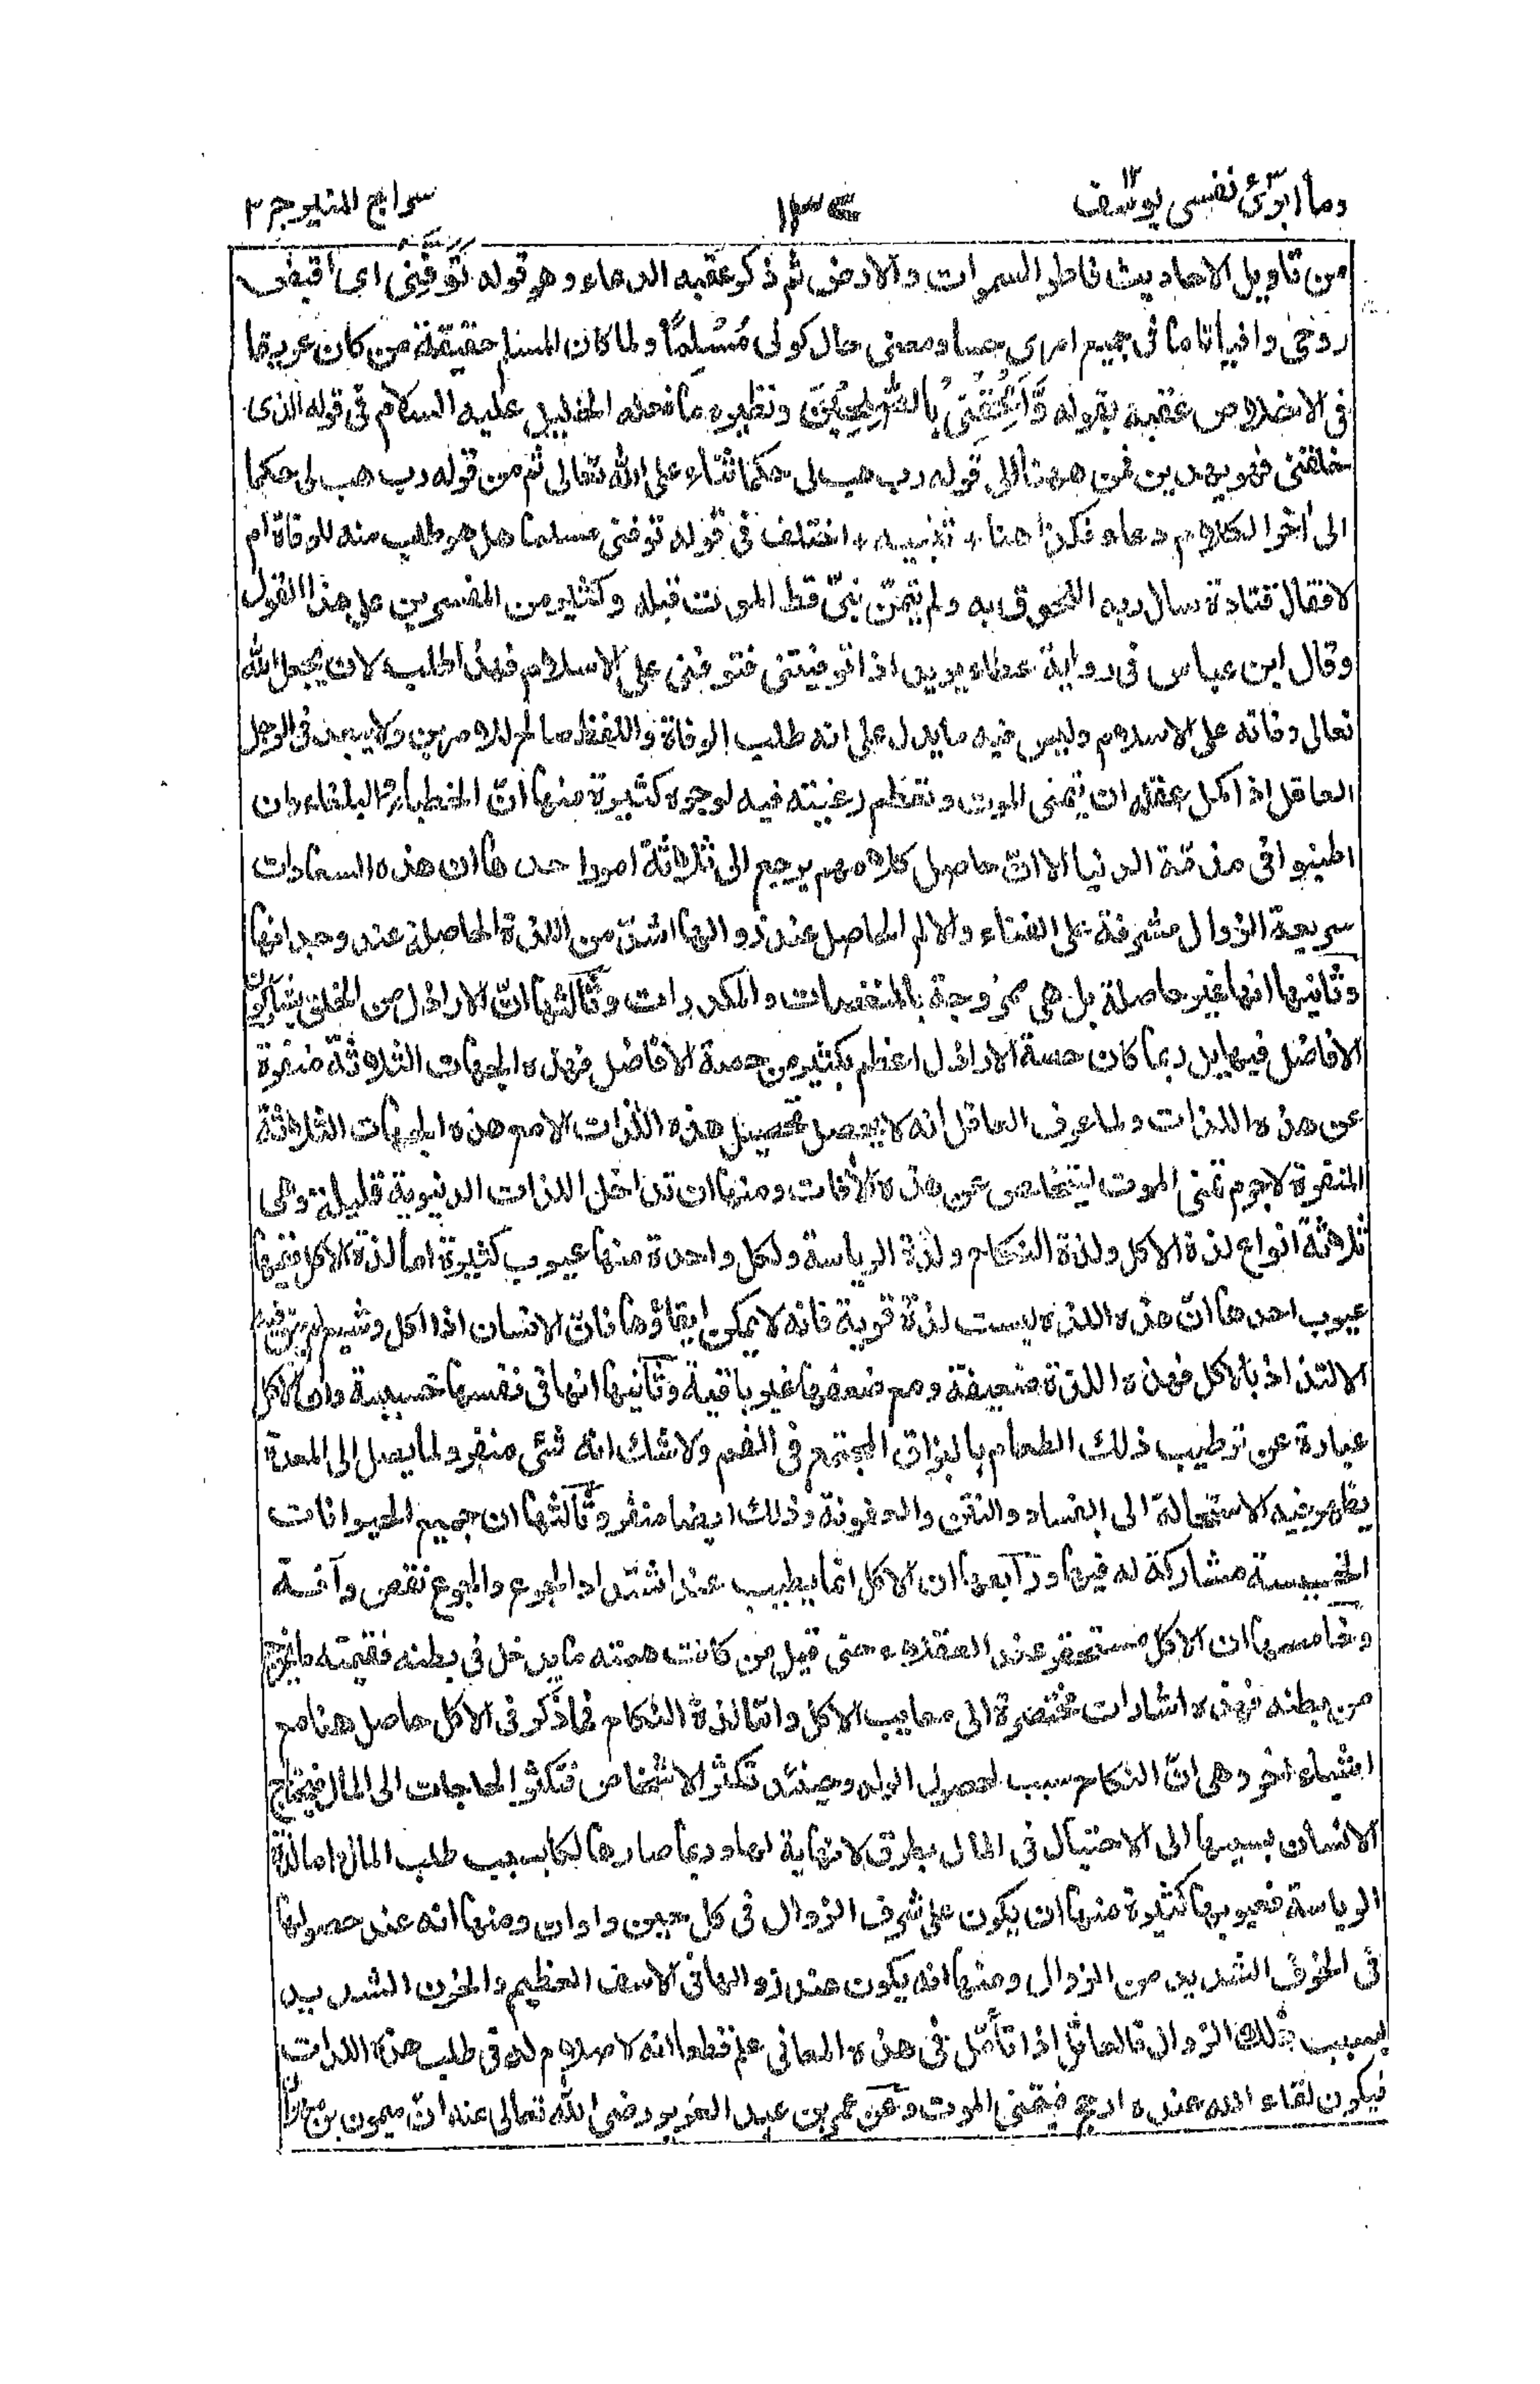 وما ابرّئ نفسى يوسف ١٢
١٣٤
سراج المنير ج ٢
من تاويل الاحاديث فاطر السموات والارض ثم ذكر عقبه الدعاء وهو قوله تَوَفَّنِى اى اقبض
روحى وافيا تاما فى جميع امرى حسا ومعنى حال كونى مُسْلِمًا ولما كان المسلم حقيقة من كان عريقا
فى الاخلاص عقبه بقوله وَّاَلْحِقْنِىْ بِالصّٰلِحِيْنَ ونظيره ما فعله الخليل عليه السلام فى قوله الذى
خلقنى فهو يهدين فمن ههنا الى قوله رب هب لى حكما ثناء على الله تعالى ثم من قوله رب هب لى حكما
الى اٰخر الكلام دعاء فكذا هنا * تنبيه * اختلف فى قوله توفنى مسلما هل هو طلب منه للوفاة ام
لا فقال قتادة سال ربه اللحوق به ولم يتمنّ نبىّ قط الموت قبله وكثير من المفسرين على هذا القول
وقال ابن عباس فى رواية عطاء يريد اذا توفيتنى فتوفنى على الاسلام فهذا طلب لان يجعل الله
تعالى وفاته على الاسلام وليس فيه ما يدل على انه طلب الوفاة واللفظ صالح للامرين ولا يبعد فى الرجل
العاقل اذا كمل عقله ان يتمنى الموت وتعظم رغبته فيه لوجوه كثيرة منها انّ الخطباء والبلغاء وان
اطنبوا فى مذمّة الدنيا الا انّ حاصل كلامهم يرجع الى ثلاثة امور احدها ان هذه السعادات
سريعة الزوال مشرفة على الفناء والالم الحاصل عند زوالها اشدّ من اللذة الحاصلة عند وجدانها
وثانيها انها غير حاصلة بل هى ممزوجة بالمنغصات والمكدرات وثالثها انّ الاراذل من الخلق يشاركون
الافاضل فيها بل ربما كان حصة الاراذل اعظم بكثير من حصة الافاضل فهذه الجهات الثلاثة منفرة
عن هذه اللذات ولما عرف العاقل انه لا يحصل تحصيل هذه اللذات الا مع هذه الجهات الثلاثة
المنفرة لا جرم تمنى الموت ليتخلص عن هذه الاٰفات ومنها ان تداخل اللذات الدنيوية قليلة وهى
ثلاثة انواع لذة الاكل ولذة النكاح ولذة الرياسة ولكل واحدة منها عيوب كثيرة اما لذة الاكل ففيها
عيوب احدها انّ هذه اللذه ليست لذة قوية فانه لا يمكن ابقاؤها فانّ الانسان اذا اكل وشبع لم يبق فيه
الالتذاذ بالاكل فهذه اللذة ضعيفة ومع ضعفها غير باقية وثانيها انها فى نفسها خسيسة وان الاكل
عبارة عن ترطيب ذلك الطعام بالبزاق المجتمع فى الفم ولا شك انه شئ منفر ولما يصل الى المعدة
يظهر فيه الاستحالة الى الفساد والنتن والعفونة وذلك ايضا منفر وثالثها ان جميع الحيوانات
الخسيسة مشاركة له فيها ورابعها ان الاكل انما يطيب عند اشتداد الجوع والجوع نقص وآفة
وخامسها ان الاكل مستحقر عند العقلاء حتى قيل من كانت همته ما يدخل فى بطنه فقيمته ما يخرج
من بطنه فهذه اشارات مختصرة الى معايب الاكل وامّا لذة النكاح فما ذكر فى الاكل حاصل هنا مع
اشياء اخر وهى انّ النكاح سبب لحصول الولد وحينئذ تكثر الاشخاص فتكثر الحاجات الى المال فيحتاج
الانسان بسببها الى الاحتيال فى المال بطرق لا نهاية لها وربما صار هالكا بسبب طلب المال واما لذة
الرياسة فعيوبها كثيرة منها ان يكون على شرف الزوال فى كل حين واوان ومنها انه عند حصولها
فى الخوف الشديد من الزوال ومنها انه يكون عند زوالها فى الاسف العظيم والحزن الشديد
بسبب ذلك الزوال فالعاقل اذا تأمّل فى هذه المعانى علم قطعا انه لا صلاح له فى طلب هذه اللذات
فيكون لقاء الله عنده ارجح فيتمنى الموت وعن عمر بن عبد العزيز رضى الله تعالى عنه انّ ميمون بن مهران